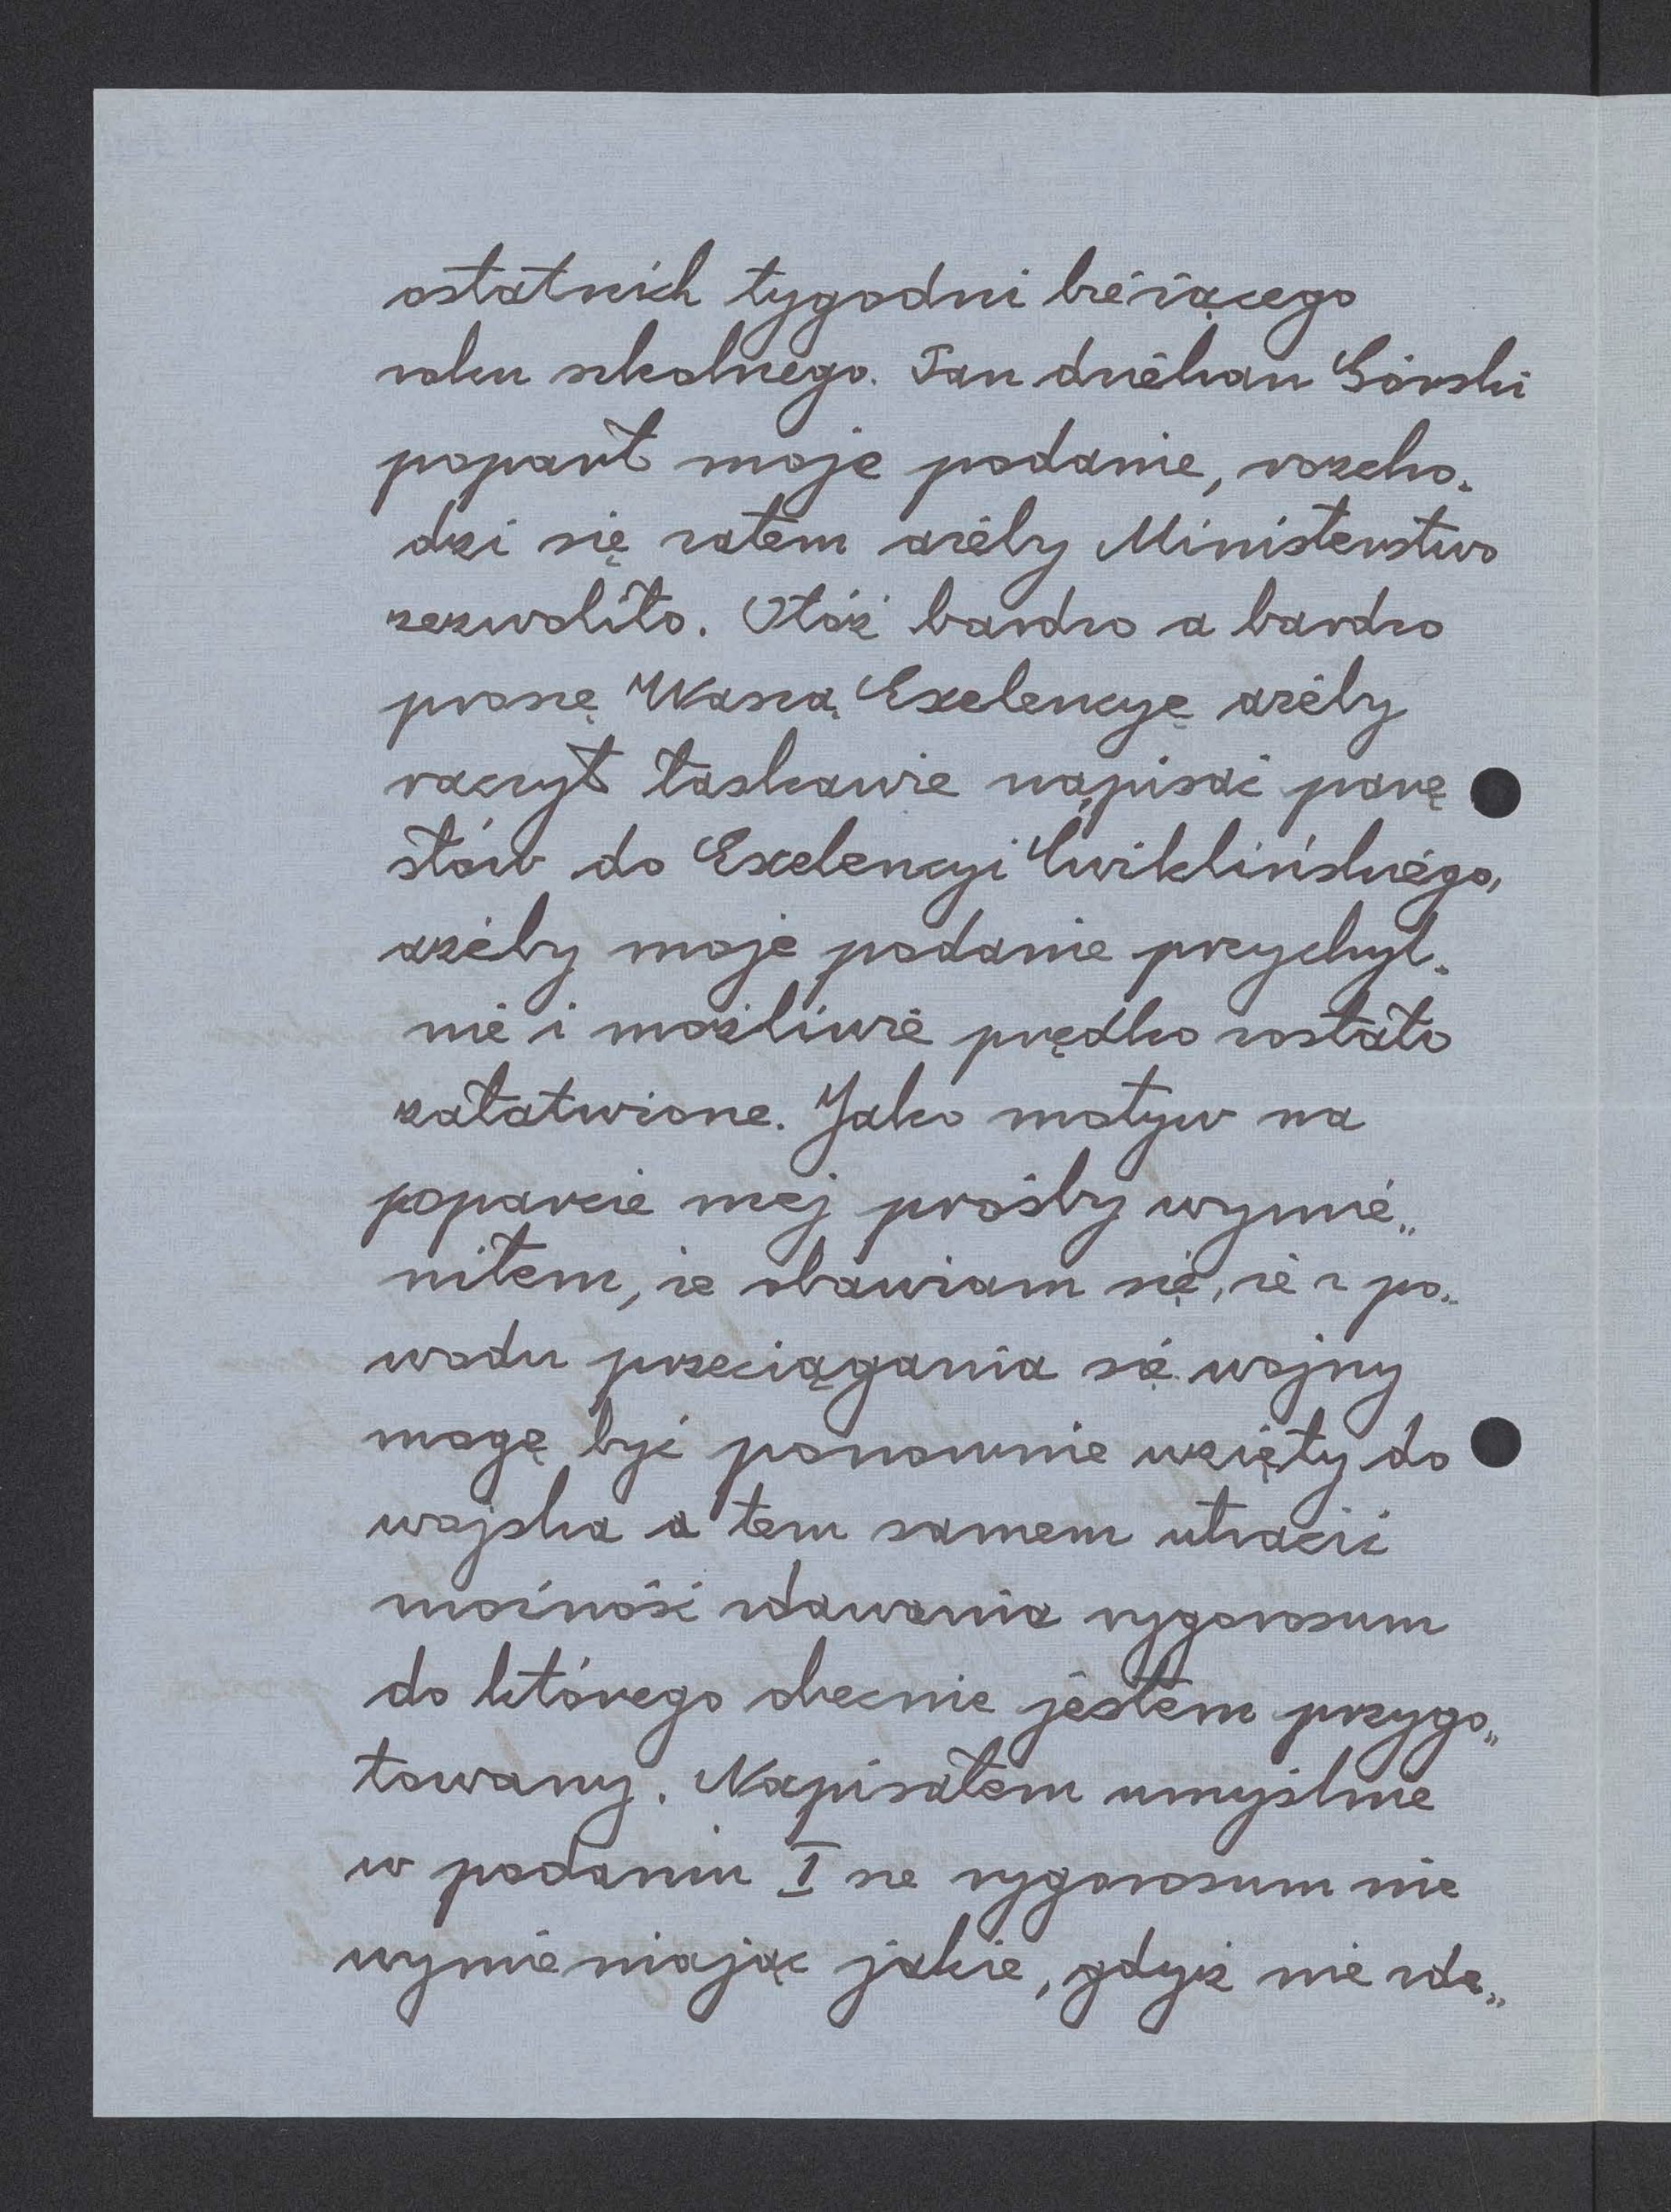 ostatnich tygodni bieżącego
roku szkolnego. Pan dziekan Górski
poparł moje podanie, rozcho-
dzi się zatem ażeby Ministerstwo
zezwoliło. Otóż bardzo a bardzo
proszę Waszą Exelencyę ażeby
raczył łaskawie napisać parę
słów do Exelencyi Ćwiklińskiego,
ażeby moje podanie przychyl-
nie i możliwie prędko zostało
załatwione. Jako motyw na
poparcie mej prośby wymie„
niłem, że obawiam się, że z po„
wodu przeciągania się wojny
mogę być ponownie wzięty do
wojska a tem samem utracić
możność zdawania rygorosum
do którego obecnie jestem przygo„
towany. Napisałem umyślnie
w podaniu I sze rygorosum nie
wymieniając jakie, gdyż nie zda„